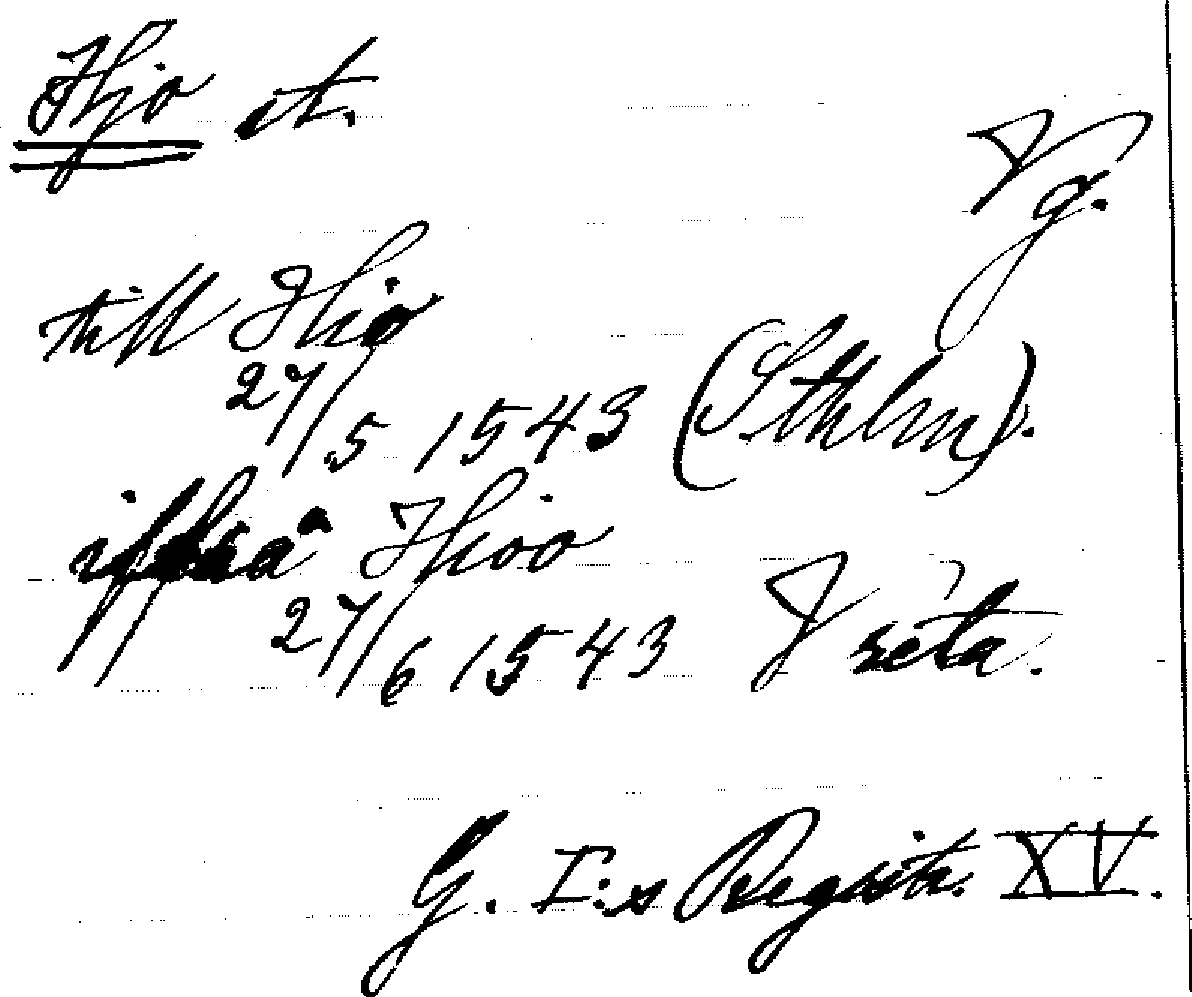 Hjo st.
Vg.
till Hio
27/5 1543 (Sthlm).
ifrå Hioo
27/6 1543 Vreta.
G. I:s Registr. XV.